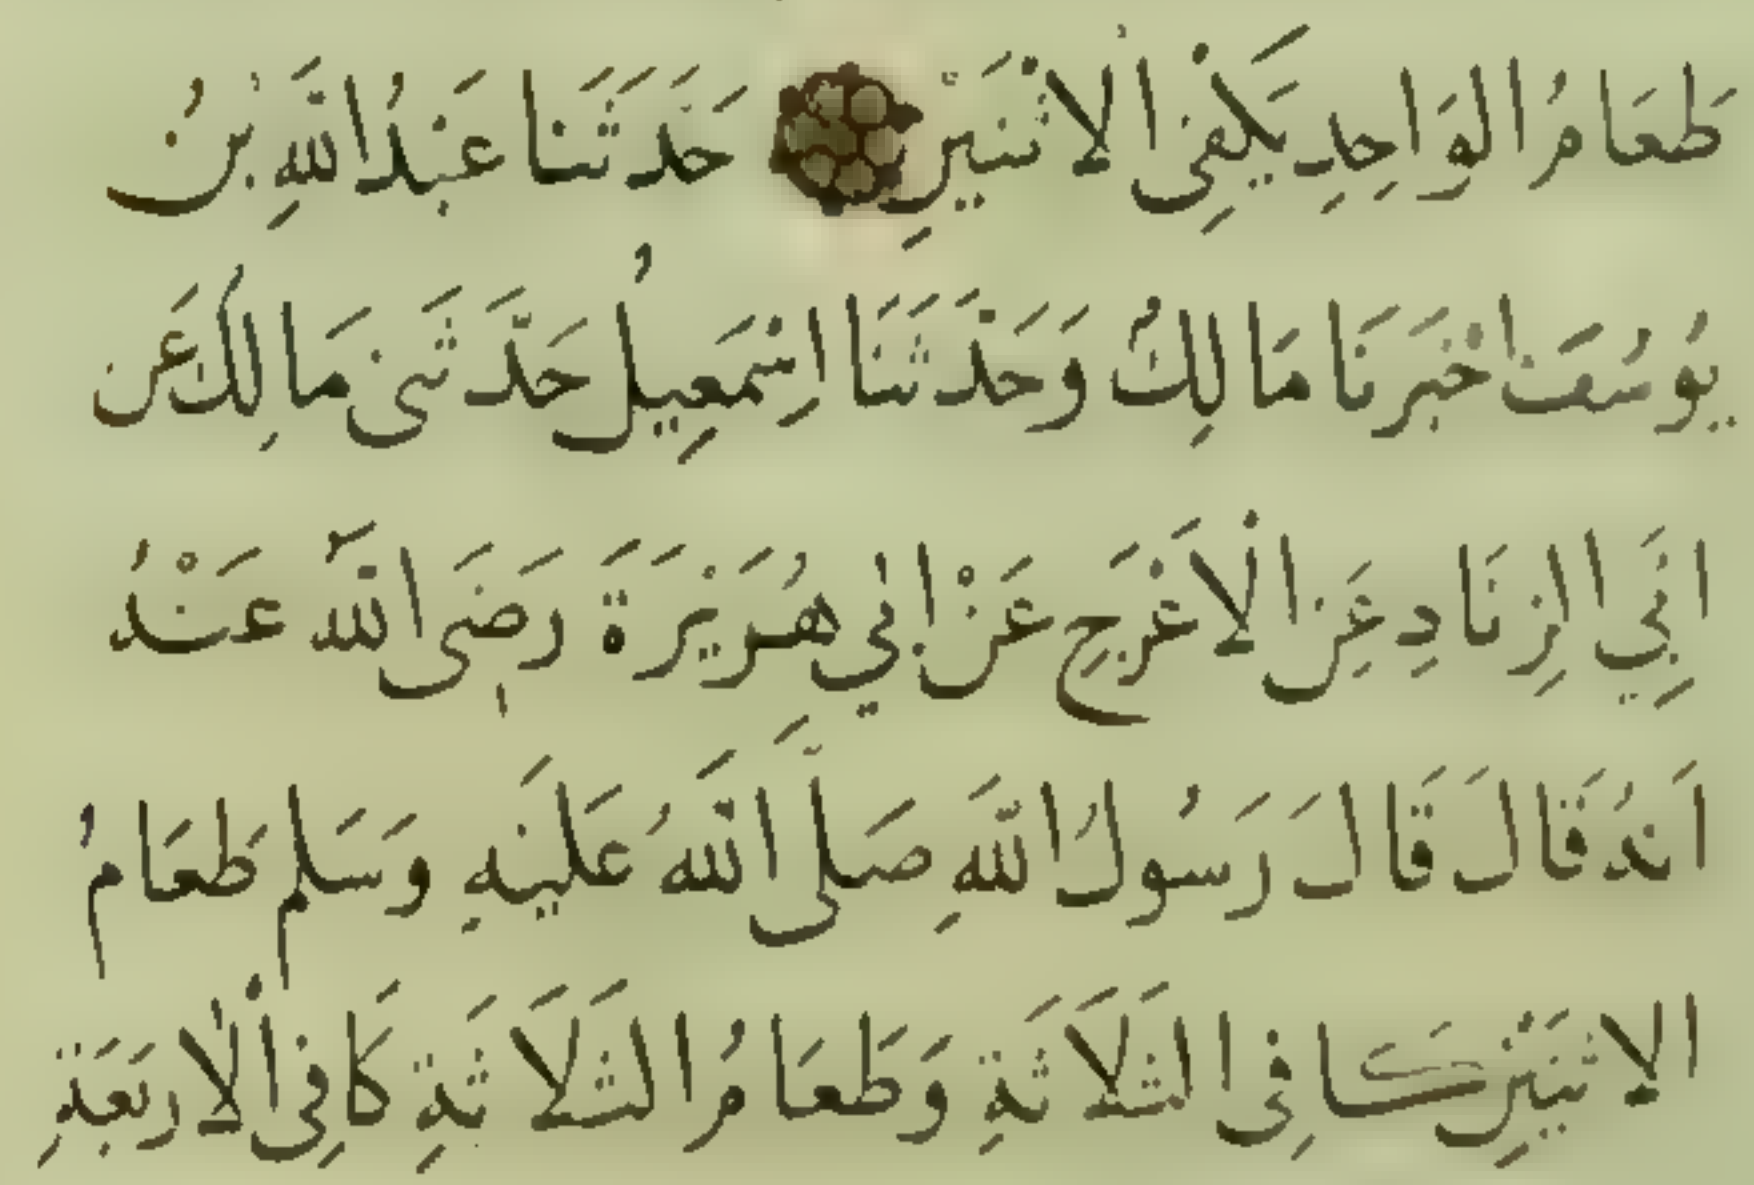 طَعَامُ الوَاحِدِ يَكْفِى الاثْنَيْنِ حَدَّثَنَا عَبْدُ اللَّهِ بْنُ
يُوسُفَ اخْبَرَنَا مَالِكٌ وَحَدَّثَنَا اِسْمَعِيلُ حَدَّثَنِى مَالِكٌ عَن
اَبِي الزِنَادِ عَنِ الْاعْرَجِ عَنْ ابِي هُرَيْرَةَ رَضِىَ اللَّه عَنْهُ
اَنَّهُ قَالَ قَالَ رَسُولُ اللَّهِ صَلَّى اللَّهُ عَلَيْهِ وَسَلم طَعَامُ
الاِثْنَيْنِ كَافِى الثَلَاثَةِ وَطَعَامُ الثَلَاثَةِ كَافِى الْارْبَعَةِ